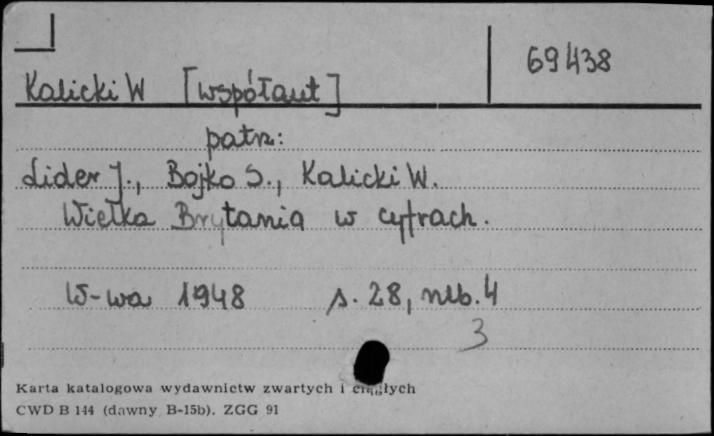 69438
Kalicki W [współaut]
patrz:
Lider J., Bojko S., Kalicki W.
Wielka Brytania w cyfrach.
W-wa 1948 s. 28, nlb. 4
3
Karta katalogowa wydawnictw zwartych i ciągłych
CWD B 144 (dawny B-15b). ZGG 91